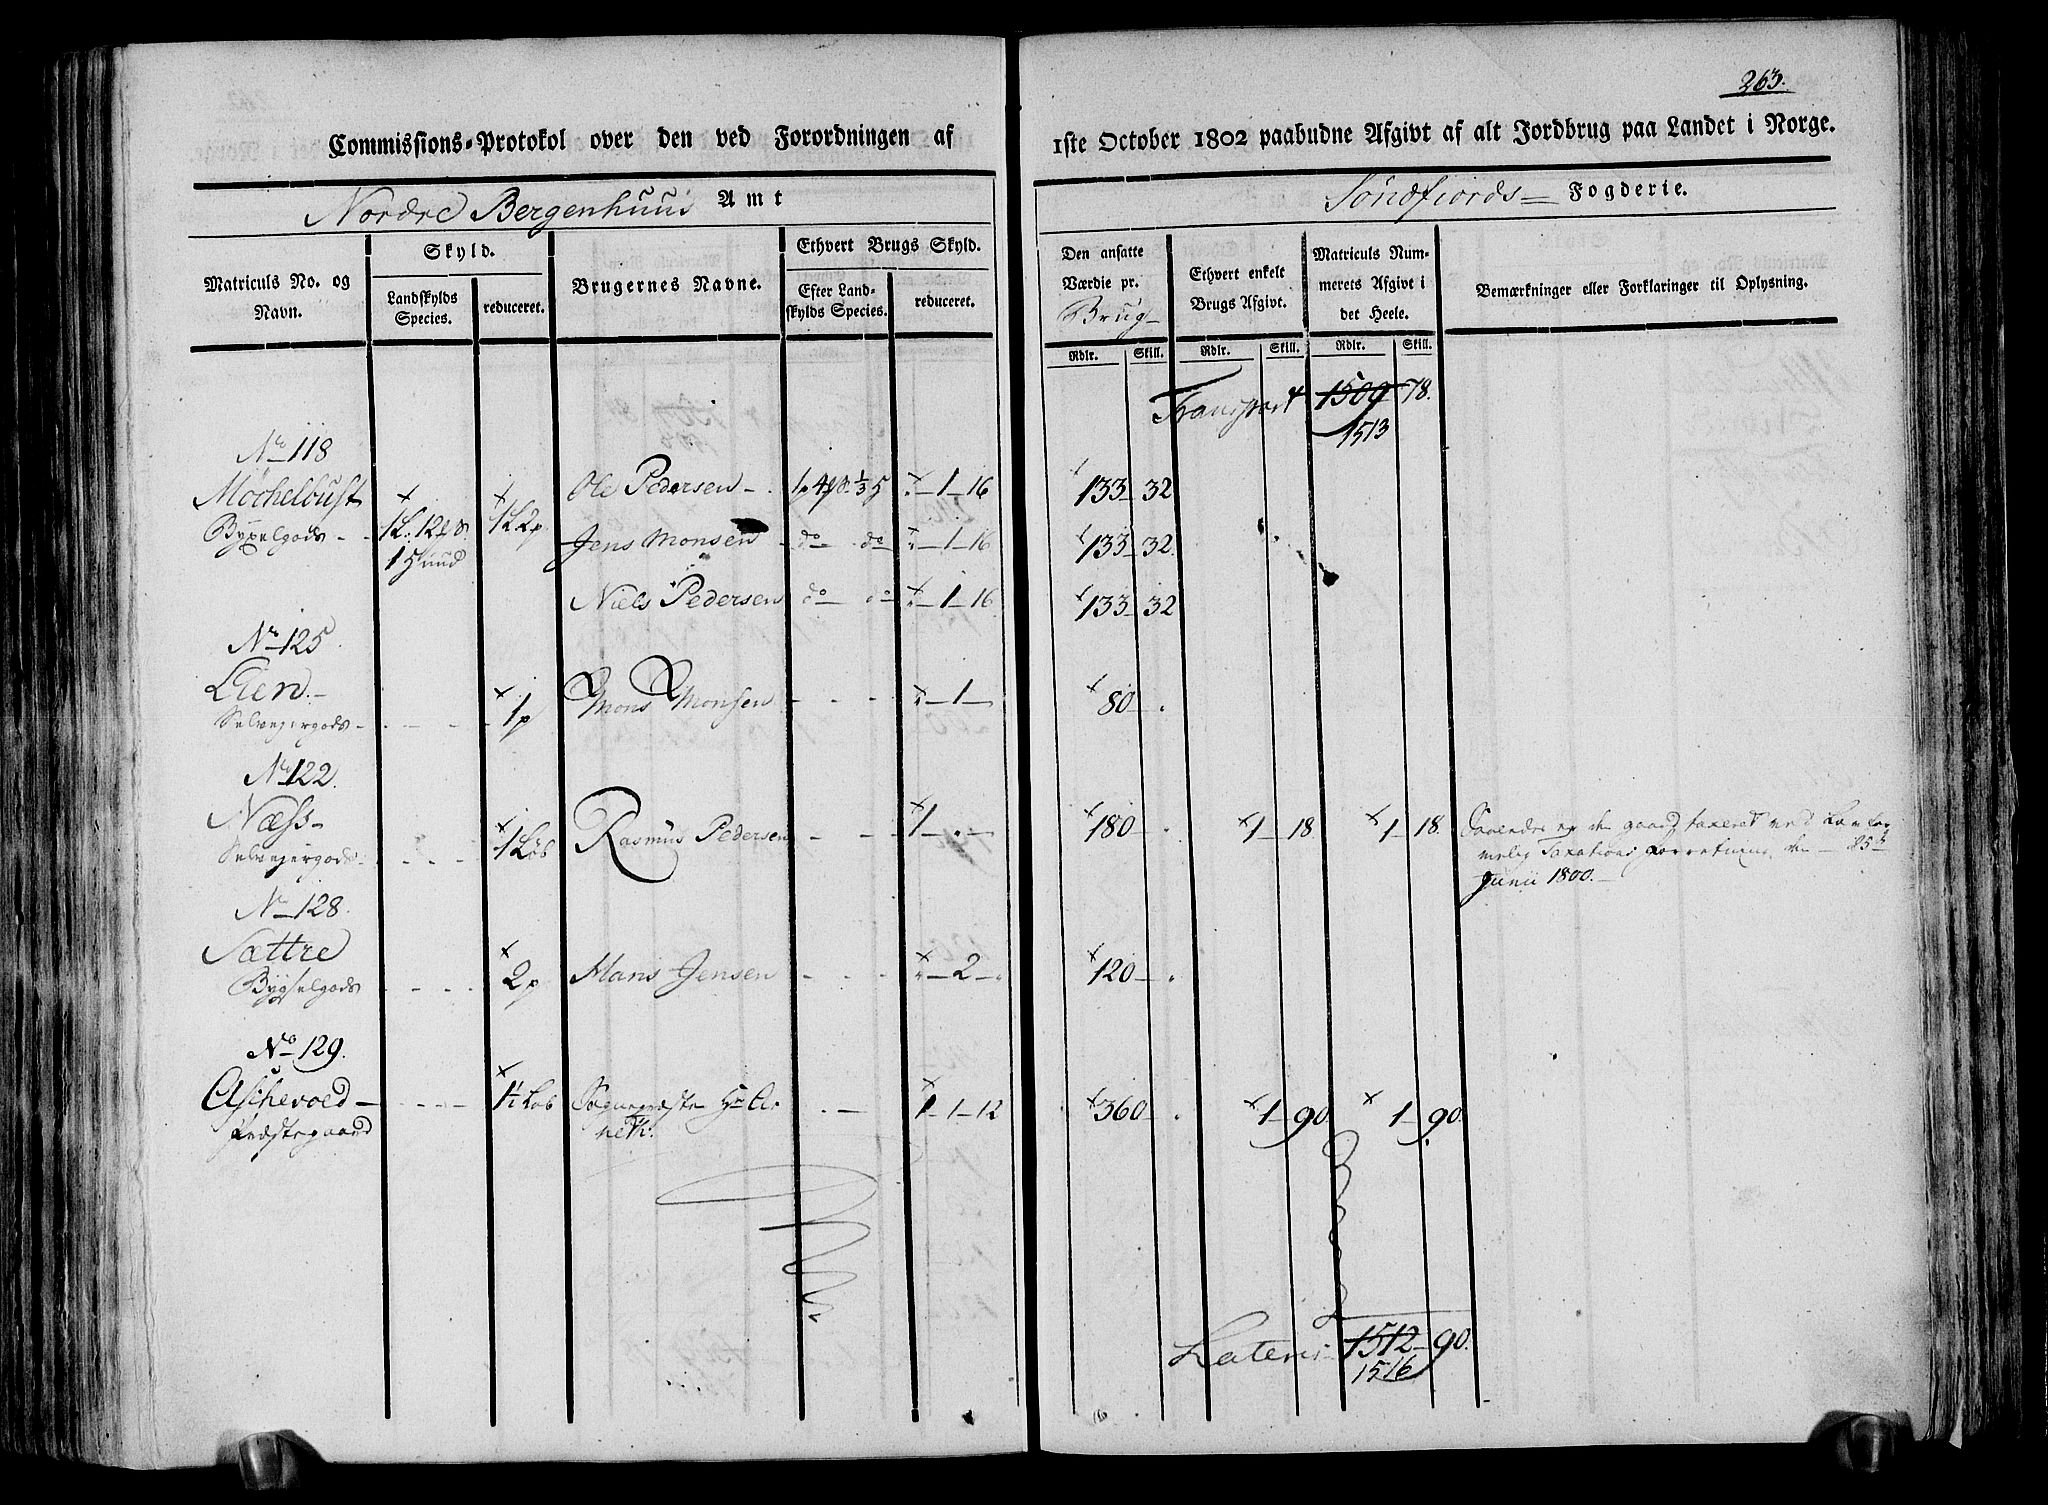 263.
Commissions-Protokol over den ved Forordningen af 1ste October 1802 paabudne Afgivt af alt Jordbrug paa Landet i Norge.
Nordre Bergenhuus Amt
Søndfiords Fogderie.
Matriculs No. og Navn.
Skyld.
Landskylds Species.
reduceret.
Brugernes Navne.
Ethvert Brugs Skyld.
Efter Landskylds Species.
reduceret.
Den ansatte Værdie pr. Brug
Ethvert enkelt Brugs Afgivt.
Matriculs Nummerets Afgivt i det Heele.
Bemærkninger eller Forklaringer til Oplysning.
Rdlr. Skill. Rdlr. Skill. Rdlr. Skill.
Transport 1509 78.
1513
No 118
Møchelbust 1L 2p Ole Pedersen 1-16 133 32
Bygselgods Jens Monsen do do 1-16 133 32
1 Huud
Niels Pedersen do do 1-16 133 32
No 125
Lien
Selvejergods 1p Mons Monsen 1 80
No 122
Næss
Selvejergods 1 Løb Rasmus Pedersen 1 180 1 18. 1 18.
den gaard taxeret ved
Taxations Forretning den 25
Junii 1800.
No 128.
Sættre
Bygselgods 2p Mans Jensen 2 120
No 129.
Aschevold Løb Sognepræsten Hr 1-1-12 360 1 90. 1 90.
Præstegaard
Lateris 1512 90.
1516